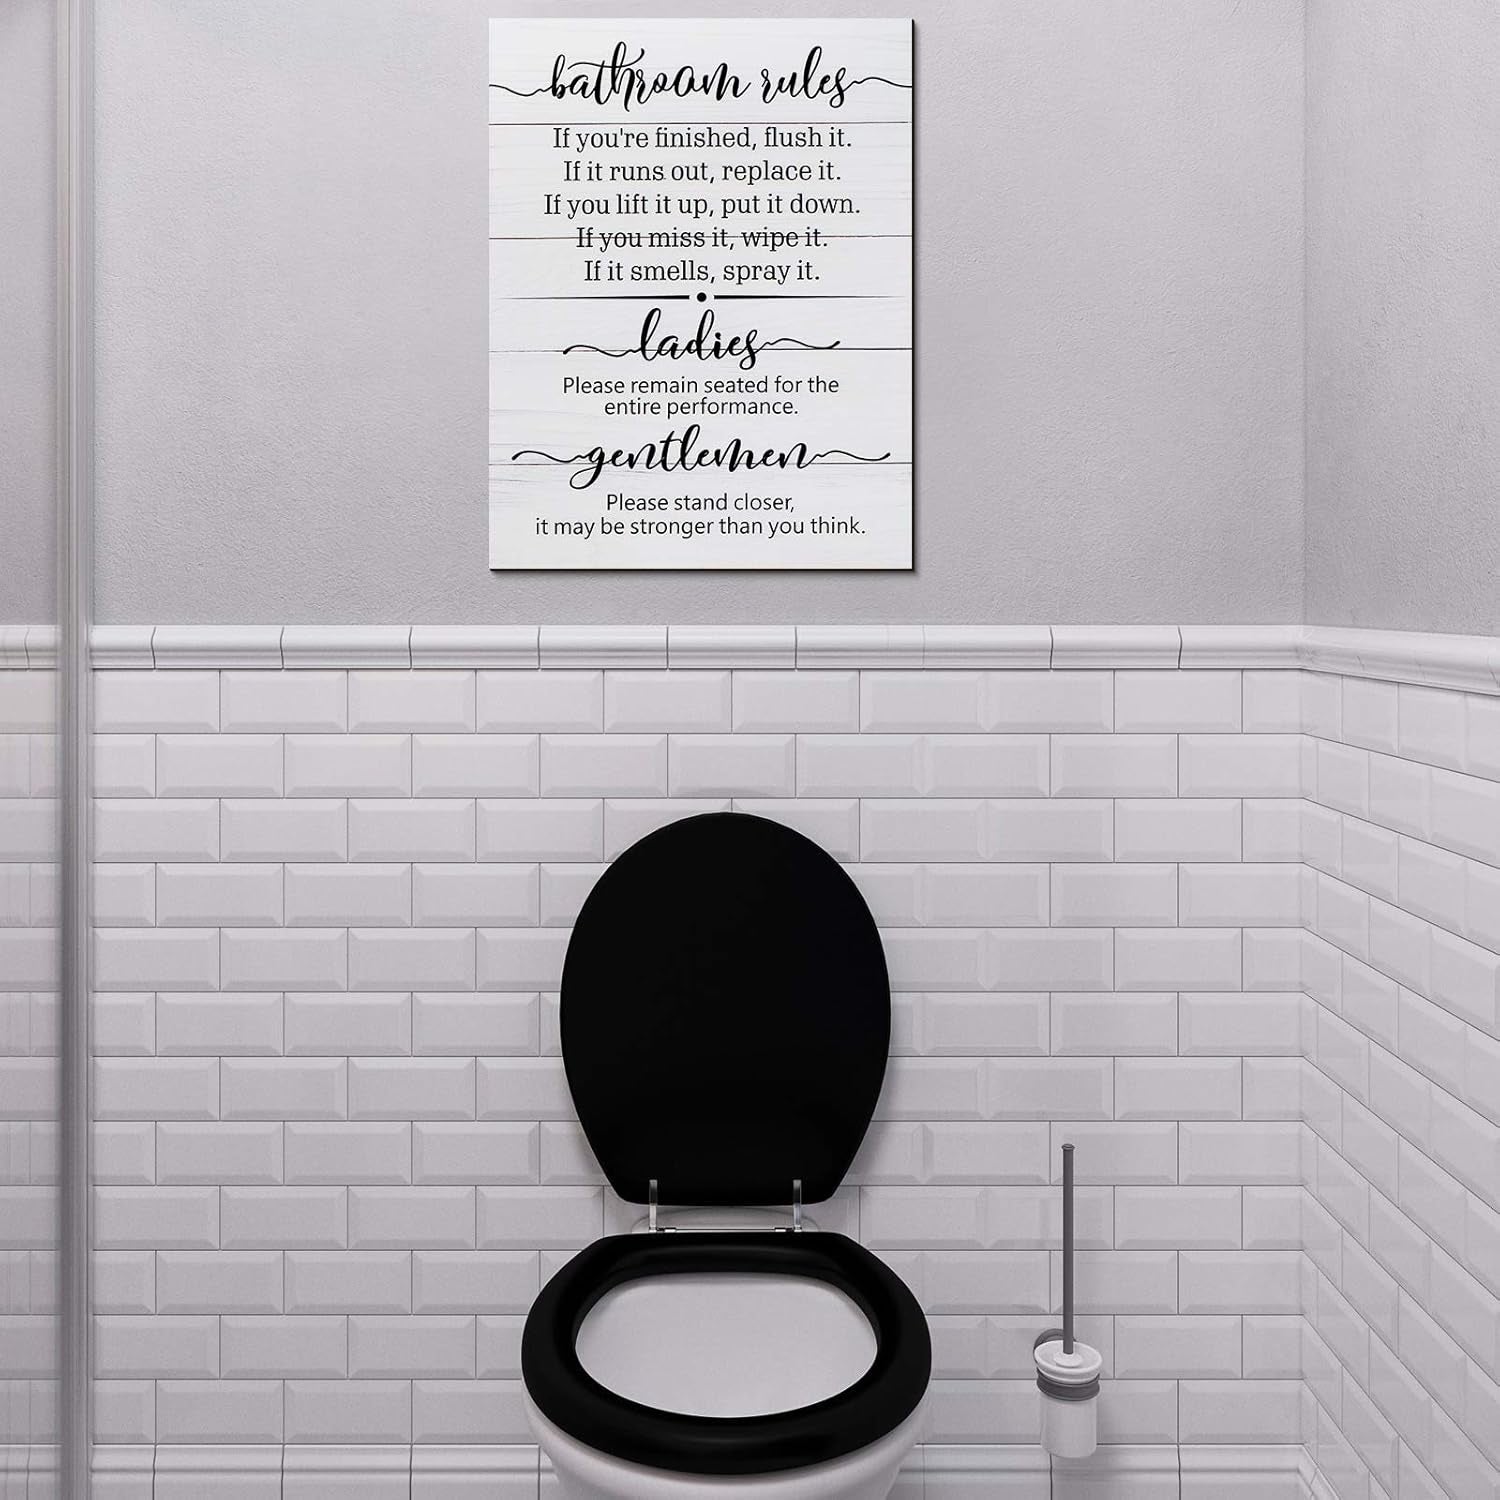 bathroom rules
If you're finished, flush it.
If it runs out, replace it.
If you lift it up, put it down.
If you miss it, wipe it.
If it smells, spray it.
ladies
Please remain seated for the
entire performance.
gentlemen
Please stand closer,
it may be stronger than you think.